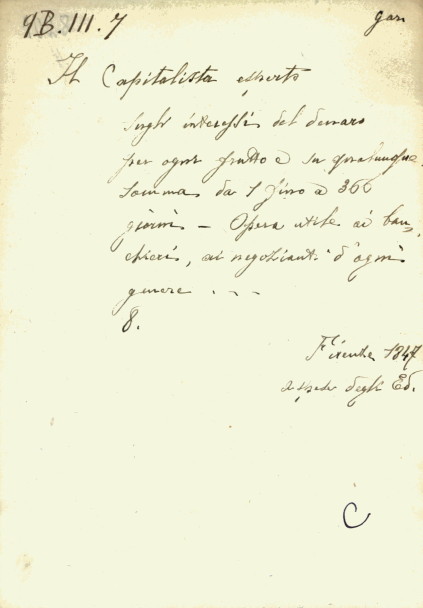 9B.III.7
gan
Il Capitalista esperto
sugli interessi del denaro
per ogni frutto e su qualunque
somma da 1 fino a 366
giorni — Opera utile ai ban-
chieri, ai negozianti d'ogni
genere . . —
8.
Firenze 1847
a spese degli Ed.
C